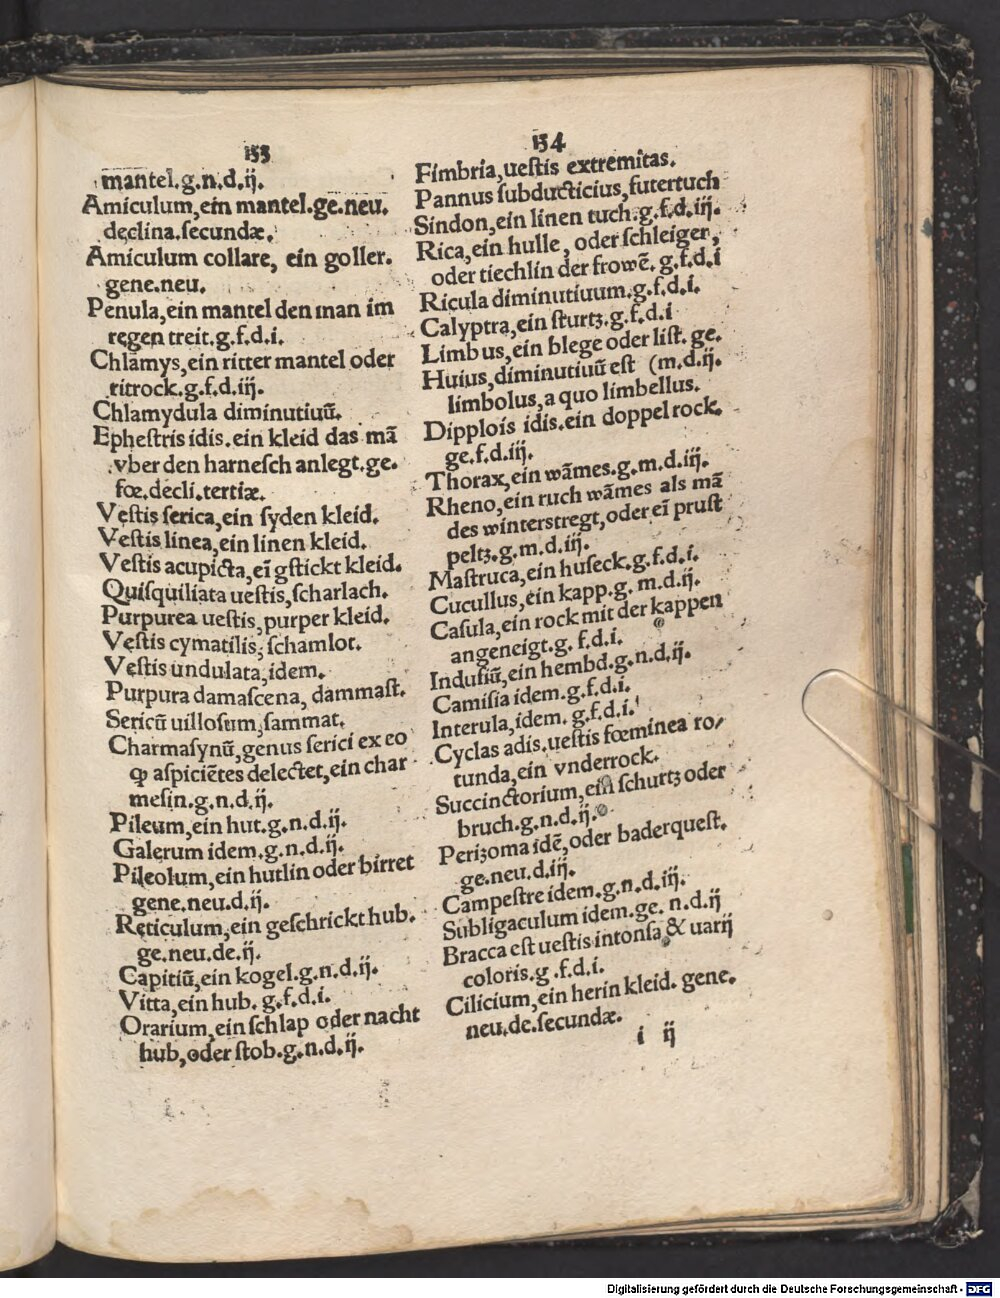 133
mantel.g.n.d.ij.
Amiculum,ein mantel.ge.neu.
declina.ſecundæ.
Amiculum collare, ein goller.
gene.neu.
Penula,ein mantel den man im
regen treit.g.f.d.i.
Chlamys,ein ritter mantel oder
ritrock.g.f.d.iij.
Chlamydula diminutiuũ.
Epheſtris idis.ein kleid das mã
vber den harneſch anlegt.ge.
fœ.decli.tertiæ.
Veſtis ſerica,ein ſyden kleid.
Veſtis linea,ein linen kleid.
Veſtis acupicta,eĩ gſtickt kleid.
Quiſquiliata ueſtis,ſcharlach.
Purpurea ueſtis,purper kleid.
Veſtis cymatilis,ſchamlot.
Veſtis undulata,idem.
Purpura damaſcena, dammaſt.
Sericũ uilloſum,ſammat.
Charmaſynũ,genus ſerici ex eo
ꝙ aſpiciẽtes delectet,ein char
meſin.g.n.d.ij.
Pileum,ein hut.g.n.d.ij.
Galerum idem.g.n.d.ij.
Pileolum,ein hutlin oder birret
gene.neu.d.ij.
Reticulum,ein geſchrickt hub.
ge.neu.de.ij.
Capitiũ,ein kogel.g.n.d.ij.
Vitta,ein hub. g.f.d.i.
Orarium,ein ſchlap oder nacht
hub,oder ſtob.g.n.d.ij.
134
Fimbria,ueſtis extremitas.
Pannus ſubducticius,futertuch
Sindon,ein linen tuch.g.f.d.iij.
Rica,ein hulle, oder ſchleiger,
oder tiechlin der frowẽ. g.f.d.i
Ricula diminutiuum.g.f.d.i.
Calyptra,ein ſturtz.g.f.d.i
Limbus,ein blege oder liſt. ge.
Huius,diminutiuũ eſt (m.d.ij.
limbolus,a quo limbellus.
Dipplois idis.ein doppel rock.
ge.f.d.iij.
Thorax,ein wãmes.g.m.d.iij.
Rheno,ein ruch wãmes als mã
des winters tregt,oder eĩ pruſt
peltz.g.m.d.iij.
Maſtruca,ein huſeck.g.f.d.i.
Cucullus,ein kapp.g. m.d.ij.
Caſula,ein rock mit der kappen
angeneigt.g. f.d.i.
Induſiũ,ein hembd.g.n.d.ij.
Camiſia idem.g.f.d.i.
Interula,idem. g.f.d.i.
Cyclas adis.ueſtis fœminea ro/
tunda,ein vnderrock.
Succinctorium,ein ſchurtz oder
bruch.g.n.d.ij.
Perizoma idẽ,oder baderqueſt.
ge.neu.d.iij.
Campeſtre idem.g.n.d.iij.
Subligaculum idem.ge. n.d.ij
Bracca eſt ueſtis intonſa & uarij
coloris.g .f.d.i.
Cilicium,ein herin kleid. gene.
neu.de.ſecundæ.
i ij
Digitalisierung gefördert durch die Deutsche Forschungsgemeinschaft - DFG